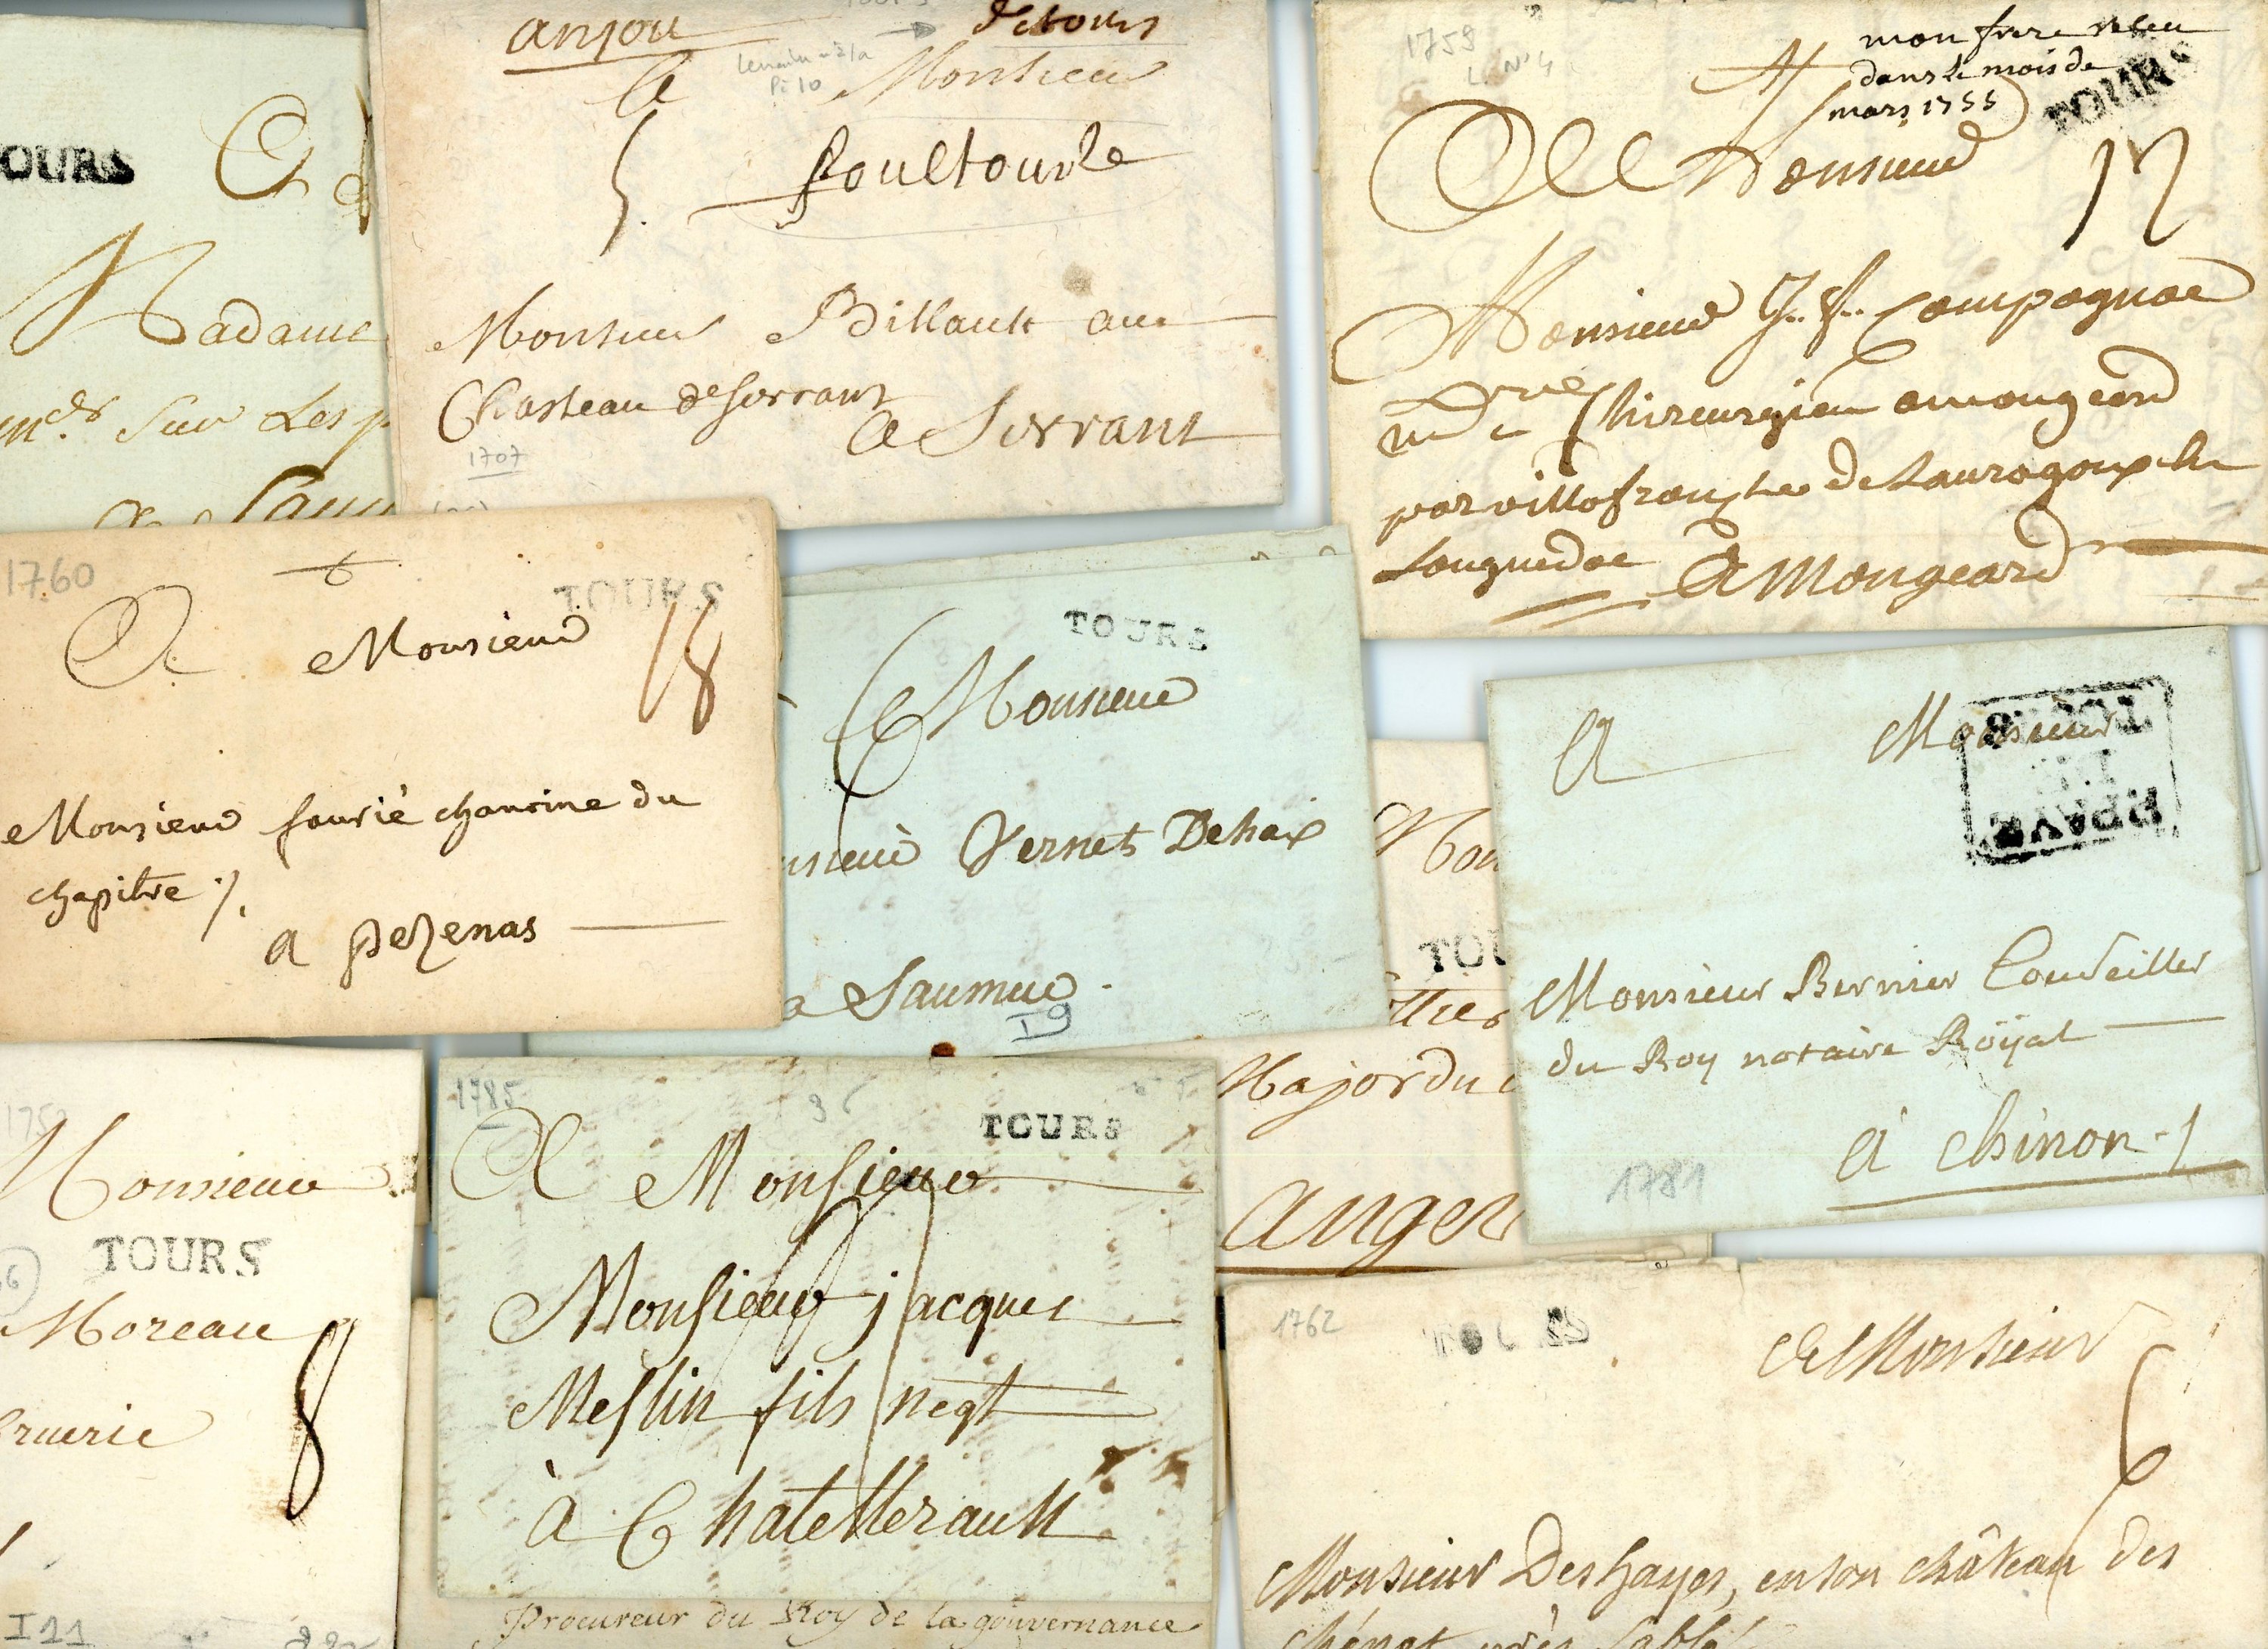 OURS
A
Madame
mde. Sur Les p
a Saum
anjou
detours
A Monsieur
5
Monsieur Billault au
Chasteau de Serrant
a Serrant
1707
1759
mon frere
dans le mois de
mars 1755
TOURS
A Monsieur
12
Monsieur J. f. Compagnac
me Chireurgien a mongeard
par villefranche de Lauragoux
Languedoc A Mongeard
1760
TOURS
A Monsieur
18
Monsieur fourié chanoine du
chapitre ./.
a pezenas
TOURS
A Monsieur
Vernet Dehaix
a Saumur
I9
TOU
Major du
anger
A Monsieur
TOURS
P.PAYE
Monsieur Bernier Conseiller
du Roy notaire Röyal
à chinon
1781
Monsieur
TOURS
Moreau
8
I11
1785
36
TOURS
A Monsieur
Monsieur jacques
Meslin fils negt
à Chatellerault
Procureur du Roy de la gouvernance
1762
TOURS
A Monsieur
6
Monsieur Deshayes, en son château des
près Sablé